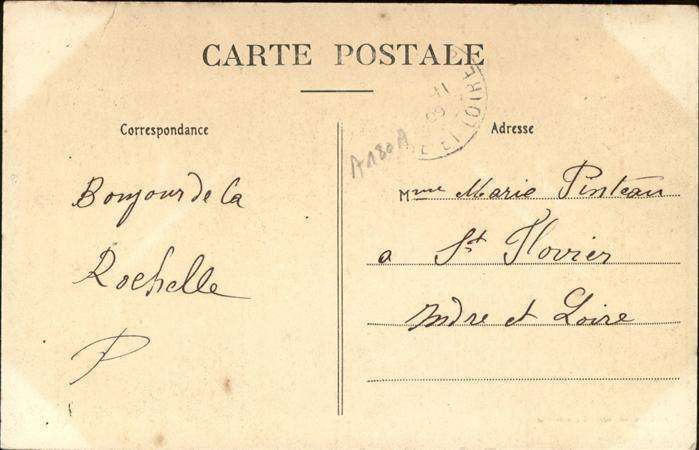 CARTE POSTALE
Correspondance
Bonjour de la
Rochelle
P
A180A
Adresse
Mme Marie Pinteau
a St Flovier
Indre et Loire
ET LOIRE